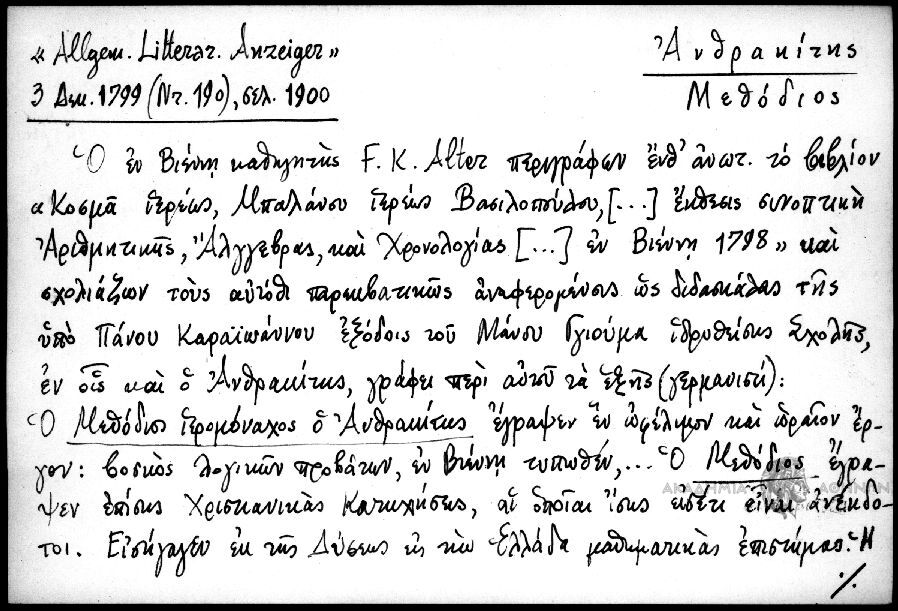 « Allgem. Litterar. Anzeiger »
3 Δεκ. 1799 (Nr. 190), σελ. 1900
Ἀνθρακίτης
Μεθόδιος
Ὁ ἐν Βιέννῃ καθηγητὴς F. K. Alter περιγράφων ἔνθ' ἀνωτ. τὸ βιβλίον
« Κοσμᾶ ἱερέως, Μπαλάνου ἱερέως Βασιλοπούλου, [...] Ἔκθεσις συνοπτικὴ
Ἀριθμητικῆς, Ἄλγγεβρας, καὶ Χρονολογίας [...] ἐν Βιέννῃ 1798 » καὶ
σχολιάζων τοὺς αὐτόθι παρεμβατικῶς ἀναφερομένους ὡς διδασκάλους τῆς
ὑπὸ Πάνου Καραϊωάννου ἐξόδοις τοῦ Μάνου Γγιούμα ἱδρυθείσης Σχολῆς,
ἐν οἷς καὶ ὁ Ἀνθρακίτης, γράφει περὶ αὐτοῦ τὰ ἑξῆς (γερμανιστί):
Ὁ Μεθόδιος ἱερομόναχος ὁ Ἀνθρακίτης ἔγραψεν ἓν ὠφέλιμον καὶ ὡραῖον ἔρ-
γον: βοσκὸς λογικῶν προβάτων, ἐν Βιέννῃ τυπωθέν,... Ὁ Μεθόδιος ἔγρα-
ψεν ἐπίσης Χριστιανικὰς Κατηχήσεις, αἱ ὁποῖαι ἴσως εἰσέτι εἶναι ἀνέκδο-
τοι. Εἰσήγαγεν ἐκ τῆς Δύσεως εἰς τὴν Ἑλλάδα μαθηματικὰς ἐπιστήμας. Ἡ
./.
ΑΚΑΔΗΜΙΑ ΑΘΗΝΩΝ